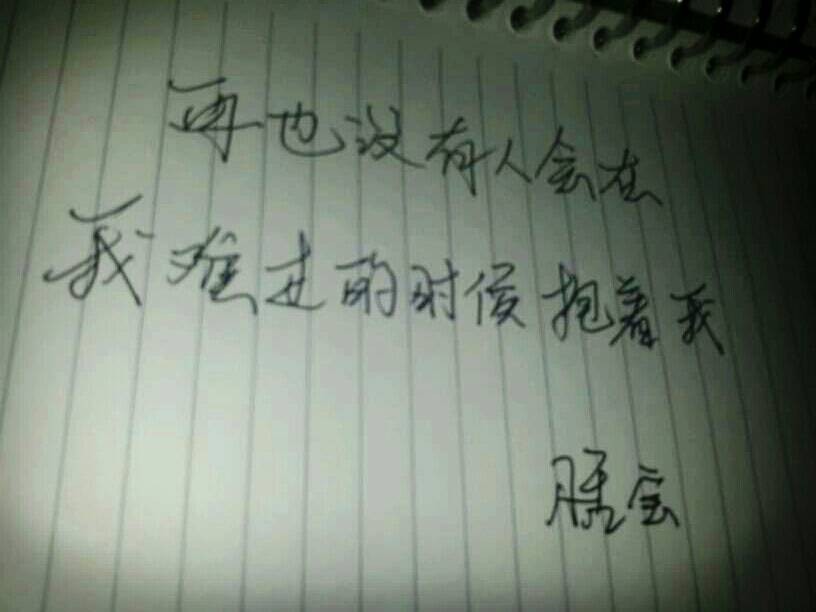 再也没有人会在
我难过的时候抱着我
宝